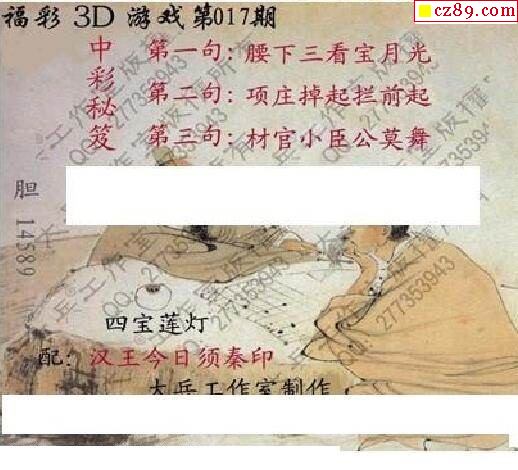 cz89.com
福彩 3D 游戏第017期
中彩秘笈
第一句：腰下三看宝月光
第二句：项庄掉起拦前起
第三句：材官小臣公莫舞
胆 14589
四宝莲灯
配：汉王今日须秦印
大兵工作室制作
大兵工作室版权所有
QQ：277353943